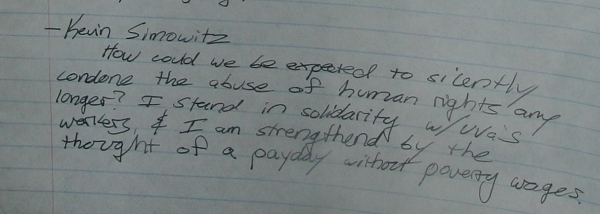 —Kevin Simowitz
How could we be expected to silently
condone the abuse of human rights any
longer? I stand in solidarity w/ UVa's
workers, & I am strengthend by the
thought of a payday without poverty wages.